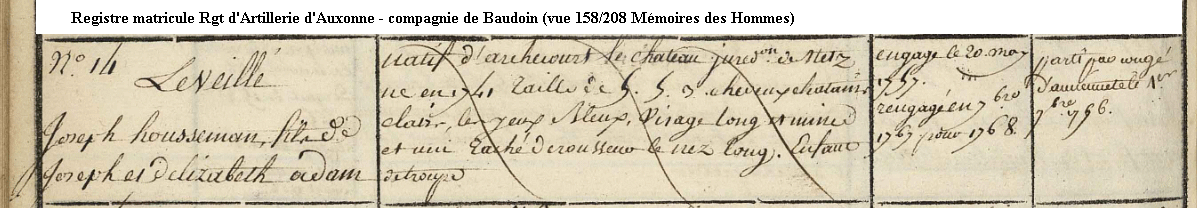 Registre matricule Rgt d'Artillerie d'Auxonne - compagnie de Baudoin (vue 158/208 Mémoires des Hommes)
No. 14
Léveillé
Joseph housseman, fils de
Joseph et d'elizabeth adam
natif d'archecourt le château jured.on de Metz
né en 1741 taille de 5. 5. 3. cheveux chatains
clairs, les yeux bleux, visage long et
et un taché de rousseur le nez long. Enfant
de troupe
engagé le 20. may
1757.
rengagé en 7bre
1767 pour 1768.
parti par congé
d'ancienneté le 1er
7bre 1766.